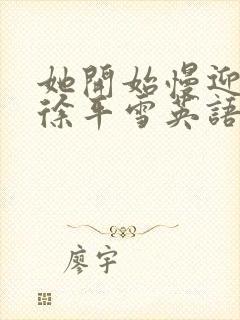 她開始慢迎
徐平雪英語
廖宇